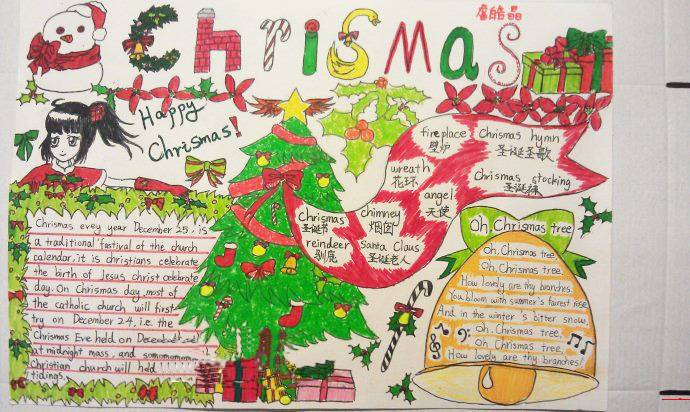 ChrisMas
詹皓晶
Happy
Chrismas!
fireplace
壁炉
Chrismas hymn
圣诞圣歌
wreath
花环
angel
天使
Chrismas stocking
圣诞袜
Chrismas
圣诞节
reindeer
驯鹿
chimney
烟囱
Santa Claus
圣诞老人
Chrismas evey year December 25. is
a traditional festival of the church
calendar, it is christians celebrate
the birth of Jesus christ celebrate
day. On Chrismas day, most of
the catholic church will first
try on December 24, i.e. the
Chrismas Eve held on
at midnight mass, and
Christian church will held
tidings.
Oh, Chrismas tree
Oh, Chrismas tree
Oh, Chrismas tree,
How lovely are thy branches.
You bloom with summer's fairest rise,
And in the winter's bitter snow,
Oh, Chrismas tree,
Oh Chrismas tree,
How lovely are thy branches!